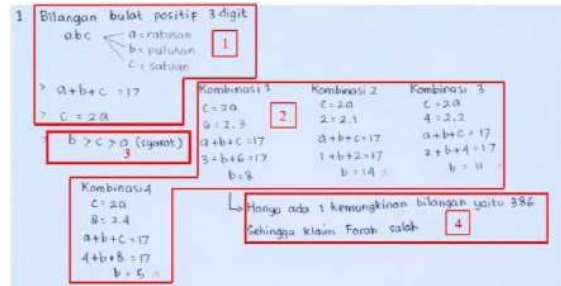 1 Bilangan bulat positif 3 digit
abc a = ratusan
b = puluhan
c = satuan
1
> a+b+c = 17
> c = 2a
> b > c > a (syarat)
3
Kombinasi 1
c = 2a
6 = 2.3
a+b+c = 17
3+b+6 = 17
b = 8
2
Kombinasi 2
c = 2a
2 = 2.1
a+b+c = 17
1+b+2 = 17
b = 14 x
Kombinasi 3
c = 2a
4 = 2.2
a+b+c = 17
2+b+4 = 17
b = 11 x
Kombinasi 4
c = 2a
8 = 2.4
a+b+c = 17
4+b+8 = 17
b = 5 x
Hanya ada 1 kemungkinan bilangan yaitu 386
Sehingga klaim Farah salah
4